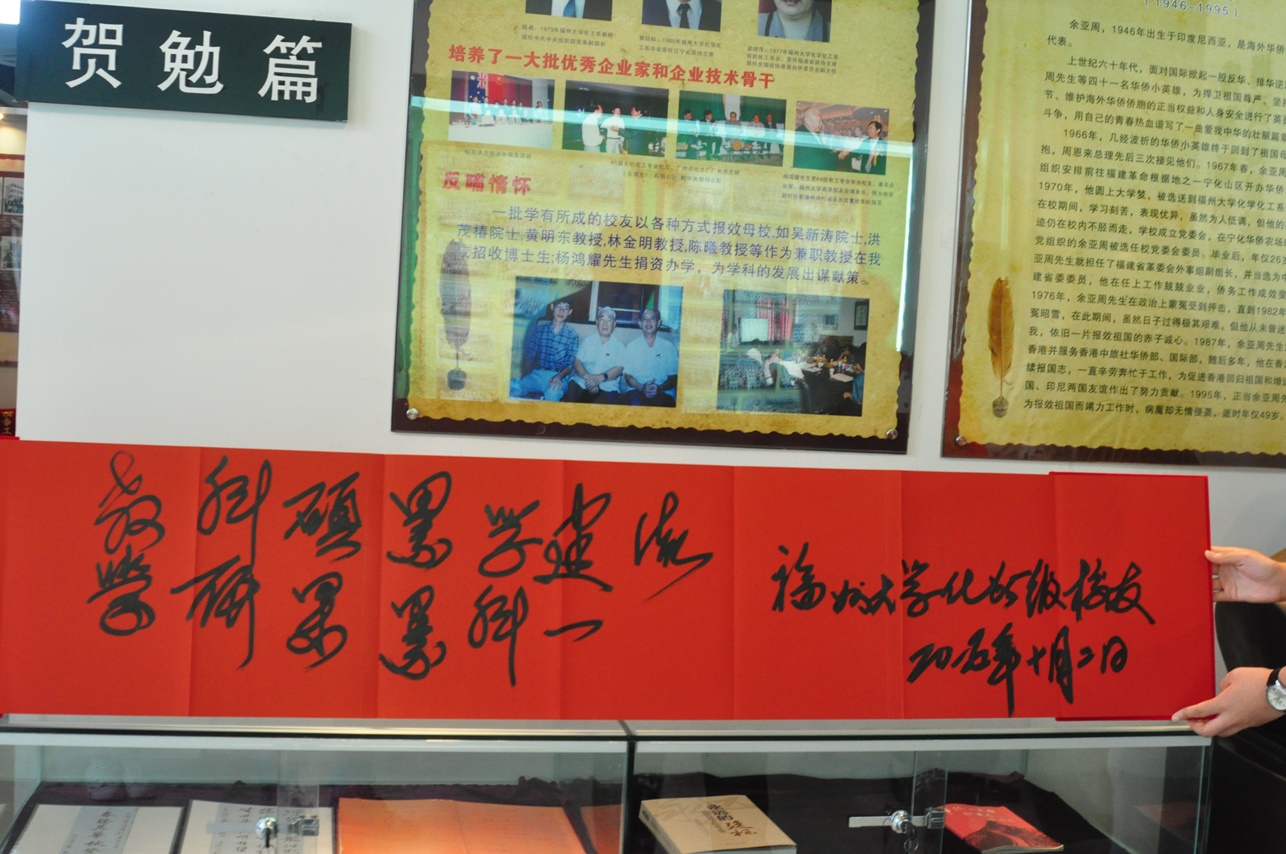 贺勉篇
培养了一大批优秀企业家和企业技术骨干
反哺情怀
一批学有所成的校友以各种方式报效母校,如吴新涛院士,洪
茂椿院士,黄明东教授,林金明教授,陈曦教授等作为兼职教授在我
院招收博士生;杨鸿耀先生捐资办学，为学科的发展出谋献策。
(1946-1995)
余亚周，1946年出生于印度尼西亚，是海外华侨
代表。
上世纪六十年代，面对国际掀起一股反华、排华逆
周先生等四十一名华侨小英雄，为捍卫祖国尊严、坚
节、维护海外华侨侨胞的正当权益和人身安全进行了英
斗争，用自己的青春热血谱写了一曲爱我中华的壮丽篇
1966年，几经波折的华侨小英雄终于回到了祖国
抱，周恩来总理先后三次接见他们。1967年春，余亚周
组织安排前往福建革命根据地之一宁化山区开办华侨
1970年，他圆上大学梦，被选送到福州大学化学化工系
在校期间，学习刻苦，表现优异，虽然为人低调，但他的
迹仍在校内不胫而走，学校成立党委会，在宁化华侨农场
党组织的余亚周被选任校党委会委员。毕业后，年仅26岁
亚周先生就担任了福建省革委会外事组副组长，并当选为
建省委委员，他在任上工作兢兢业业，侨务工作成效
1976年，余亚周先生在政治上蒙冤受到押击，直到1982年
冤昭雪，在此期间，虽然日子过得极其艰难，但他从未曾迷
我，依旧一片报效祖国的赤子诚心。1987年，余亚周先生
香港并服务香港中旅社华侨部、国际部，随后多年，他在香
续报国志，一直辛劳奔忙于工作，为促进香港回归祖国和增
国、印尼两国友谊作出了努力贡献。1995年，正当余亚周先
为报效祖国而竭力工作时，病魔却无情侵袭，逝时年仅49岁
教学
科研
硕果
累累
学科
建一
流
福州大学化级校友
年十月二日